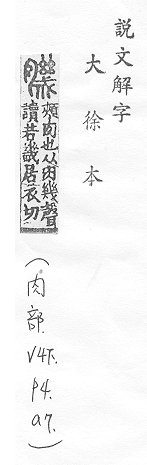 說文解字
大徐本
頰肉也从肉幾聲
讀若畿居衣切
(肉部.V4下.P4.a7.)